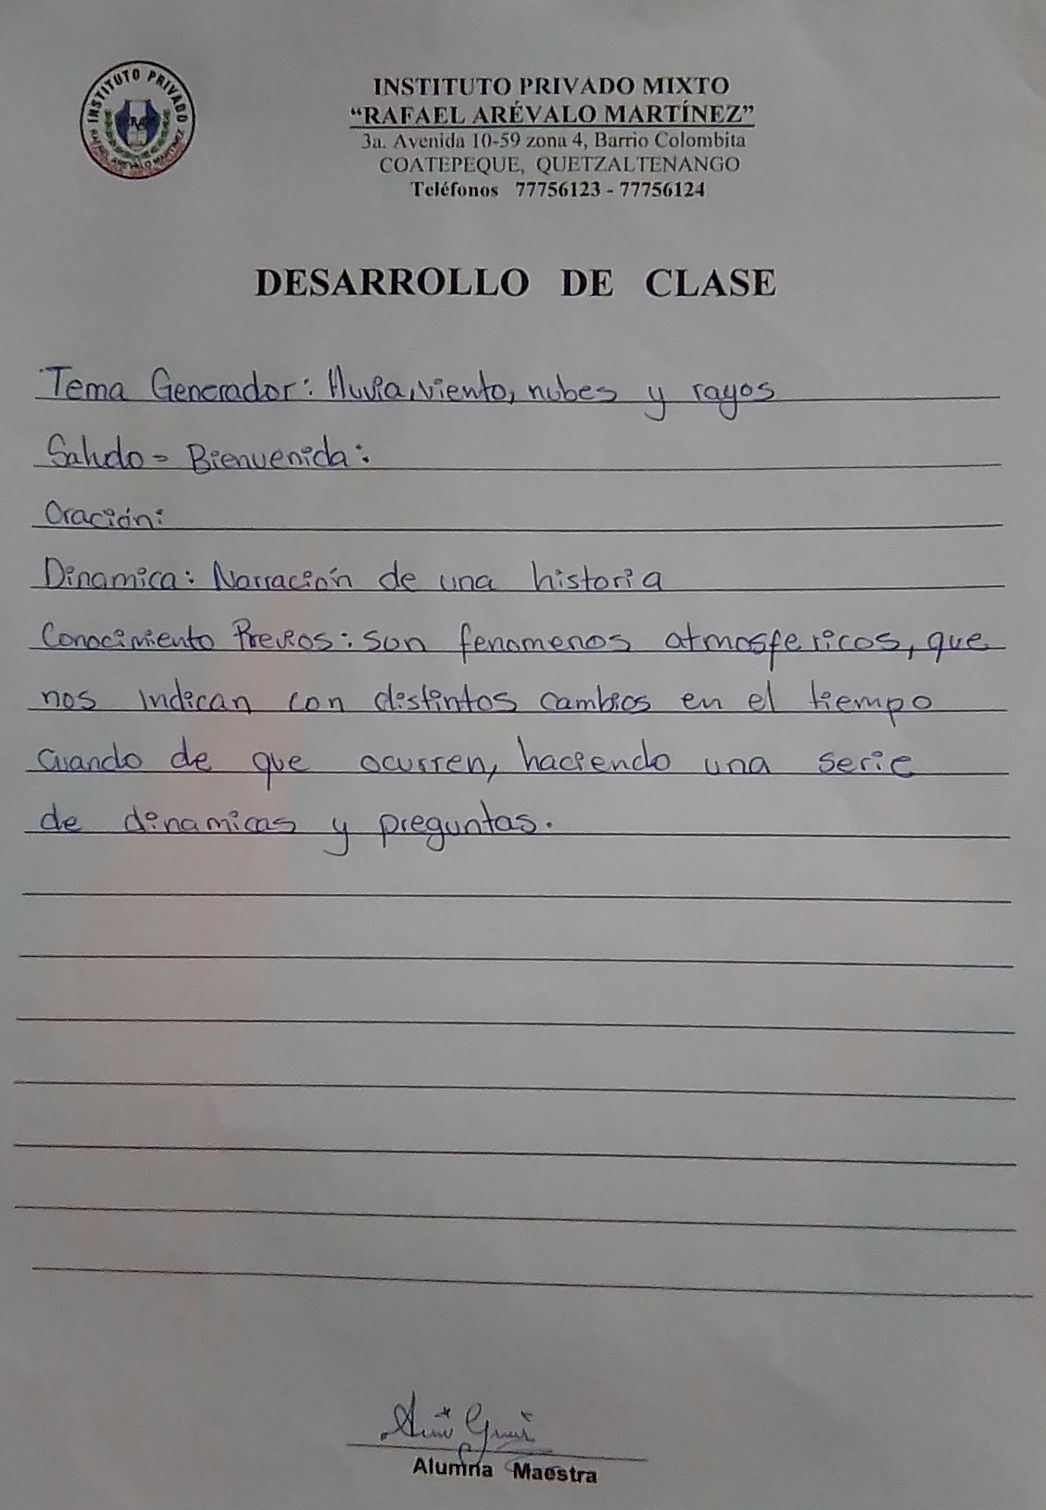 INSTITUTO PRIVADO
RAFAEL AREVALO MARTINEZ
INSTITUTO PRIVADO MIXTO
“RAFAEL ARÉVALO MARTÍNEZ”
3a. Avenida 10-59 zona 4, Barrio Colombita
COATEPEQUE, QUETZALTENANGO
Teléfonos 77756123 - 77756124
DESARROLLO DE CLASE
Tema Generador: lluvia, viento, nubes y rayos
Saludo = Bienvenida:
Oración:
Dinamica: Narración de una historia
Conocimiento Previos: son fenomenos atmosfericos, que
nos indican con distintos cambios en el tiempo
cuando de que ocurren, haciendo una serie
de dinamicas y preguntas.
Alumna Maestra